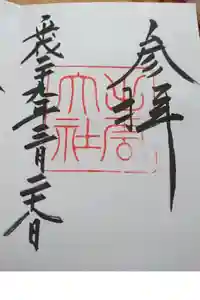 参拝
出雲大社
平成二十九年三月二十六日